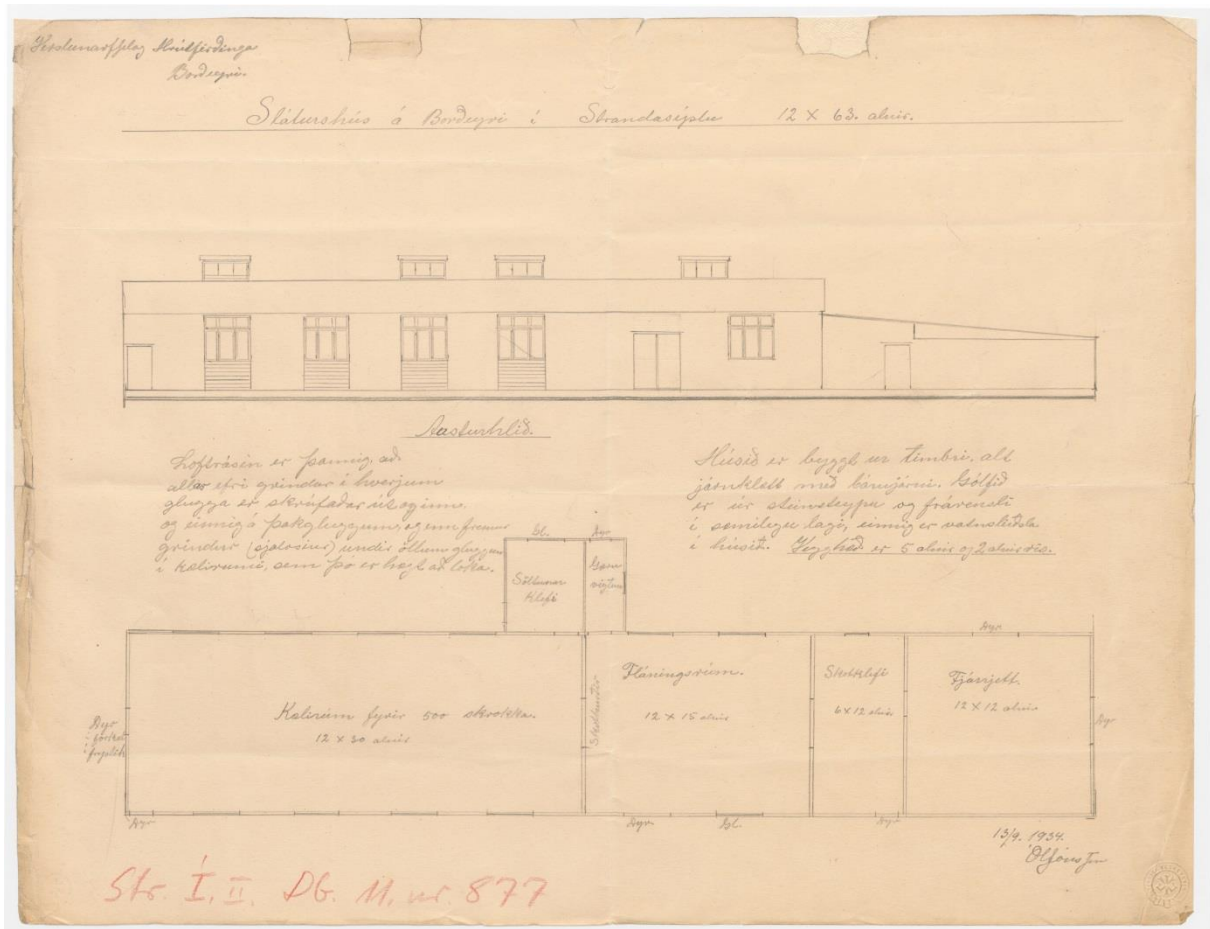 Verslunarfjelag Hrútfirðinga
Borðeyri.
Sláturshús á Borðeyri í Strandasýslu 12 X 63. alnir.
Austurhlið.
Loftrásin er þannig, að
allar efri grindur í hverjum
glugga er skrúfaðar út og inn.
og einnig á þakgluggum, og enn fremur
grindur (sjalosiur) undir öllum gluggum
í kælirúmi, sem þó er hægt að loka.
Húsið er byggt úr timbri. alt
járnklætt með bárujárni. Gólfið
er úr steinsteypu og frárensli
í sæmilegu lagi, einnig er vatnsleiðsla
í húsið. Vegghæð er 5 alnir og 2 alnir ris.
Gl.
Dyr
Söltunar
klefi
vigtun
Dyr
Kælirúm fyrir 500 skrokka.
12 X 30 alnir
Fláningsrúm.
12 X 15 alnir
Skotklefi
6 X 12 alnir
Fjárrjett.
12 X 12 alnir
Dyr
Dyr
Dyr
Dyr.
Gl.
Dyr
13/9. 1934.
Str. I, II. DG. 11, nr. 877